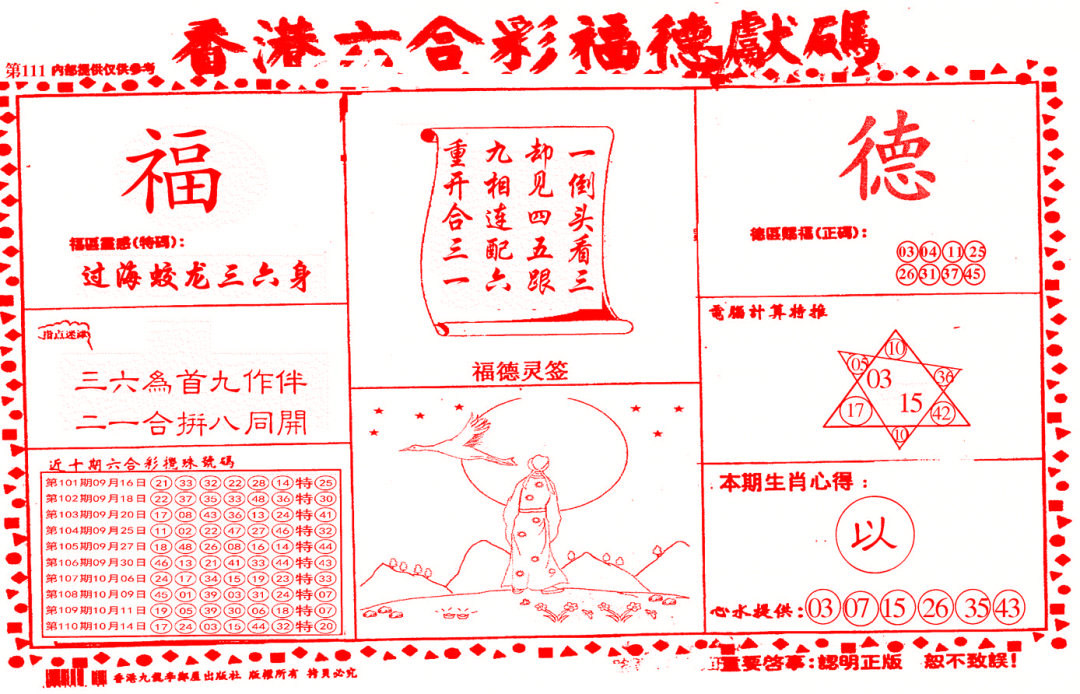 香港六合彩福德獻碼
第111 内部提供仅供参考
福
福區靈感(特碼):
过海蛟龙三六身
指点迷津
三六為首九作伴
二一合拼八同開
近十期六合彩攪珠號碼
第101期09月16日 21 33 32 22 28 14 特 25
第102期09月18日 22 37 35 33 48 36 特 30
第103期09月20日 17 08 43 36 13 24 特 41
第104期09月25日 11 02 22 47 27 46 特 32
第105期09月27日 18 48 26 08 16 14 特 44
第106期09月30日 46 13 21 41 33 44 特 43
第107期10月06日 24 17 34 15 19 23 特 33
第108期10月09日 45 01 39 03 31 24 特 07
第109期10月11日 19 05 39 30 06 18 特 07
第110期10月14日 17 24 03 15 44 32 特 20
一倒头看三
却见四五跟
九相连配六
重开合三一
福德灵签
德
德區賜福(正碼):
03 04 11 25
26 31 37 45
電腦計算特推
10
05 03 36
17 15 42
10
本期生肖心得:
以
心水提供: 03 07 15 26 35 43
香港九龍李鄭屋出版社 版權所有 拷貝必究
重要啓事:認明正版 恕不致誤!